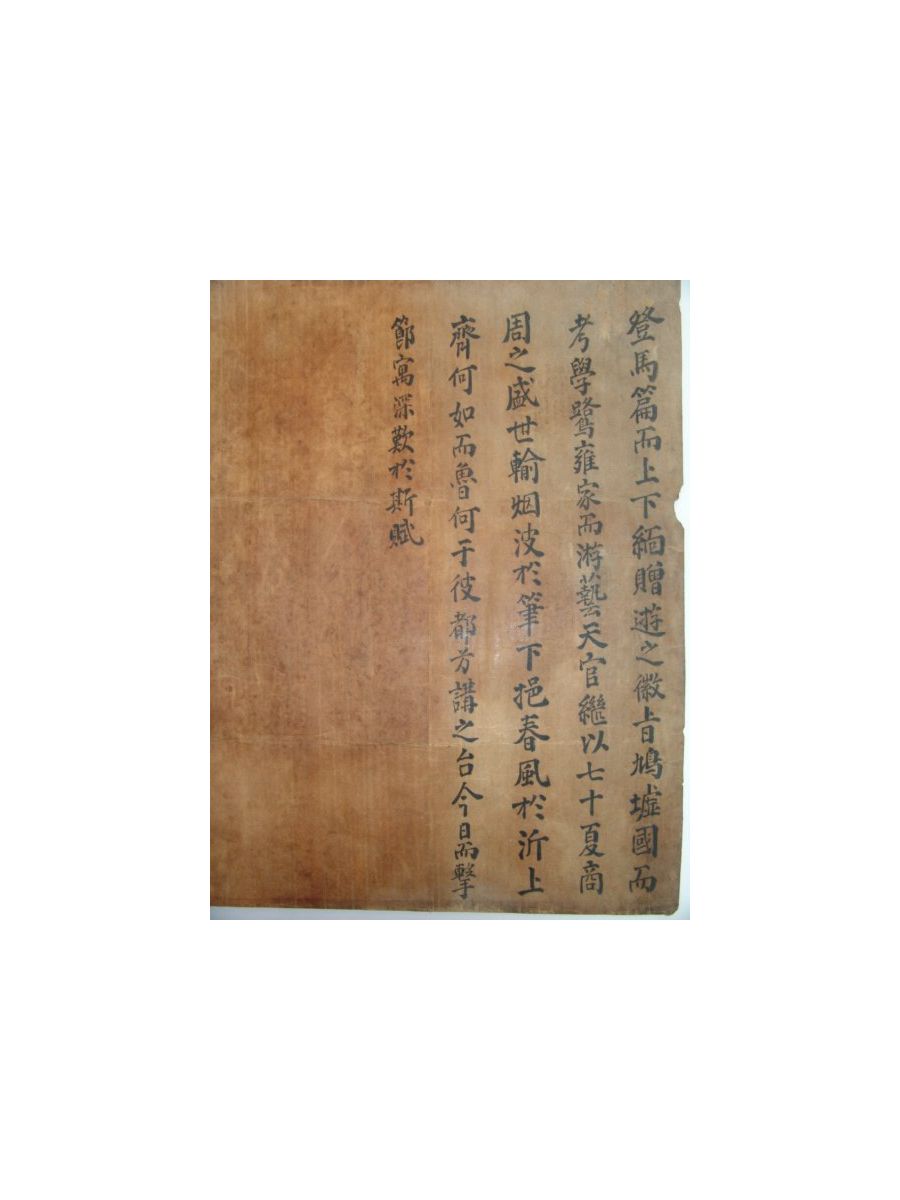 登馬篇而上下緬贈遊之徽旨鳩墟國而
考學鷺雍家而游藝天官繼以七十夏商
周之盛世輸烟波於筆下挹春風於沂上
齊何如而魯何于彼都方講之台今日而擊
節寓深歎於斯賦